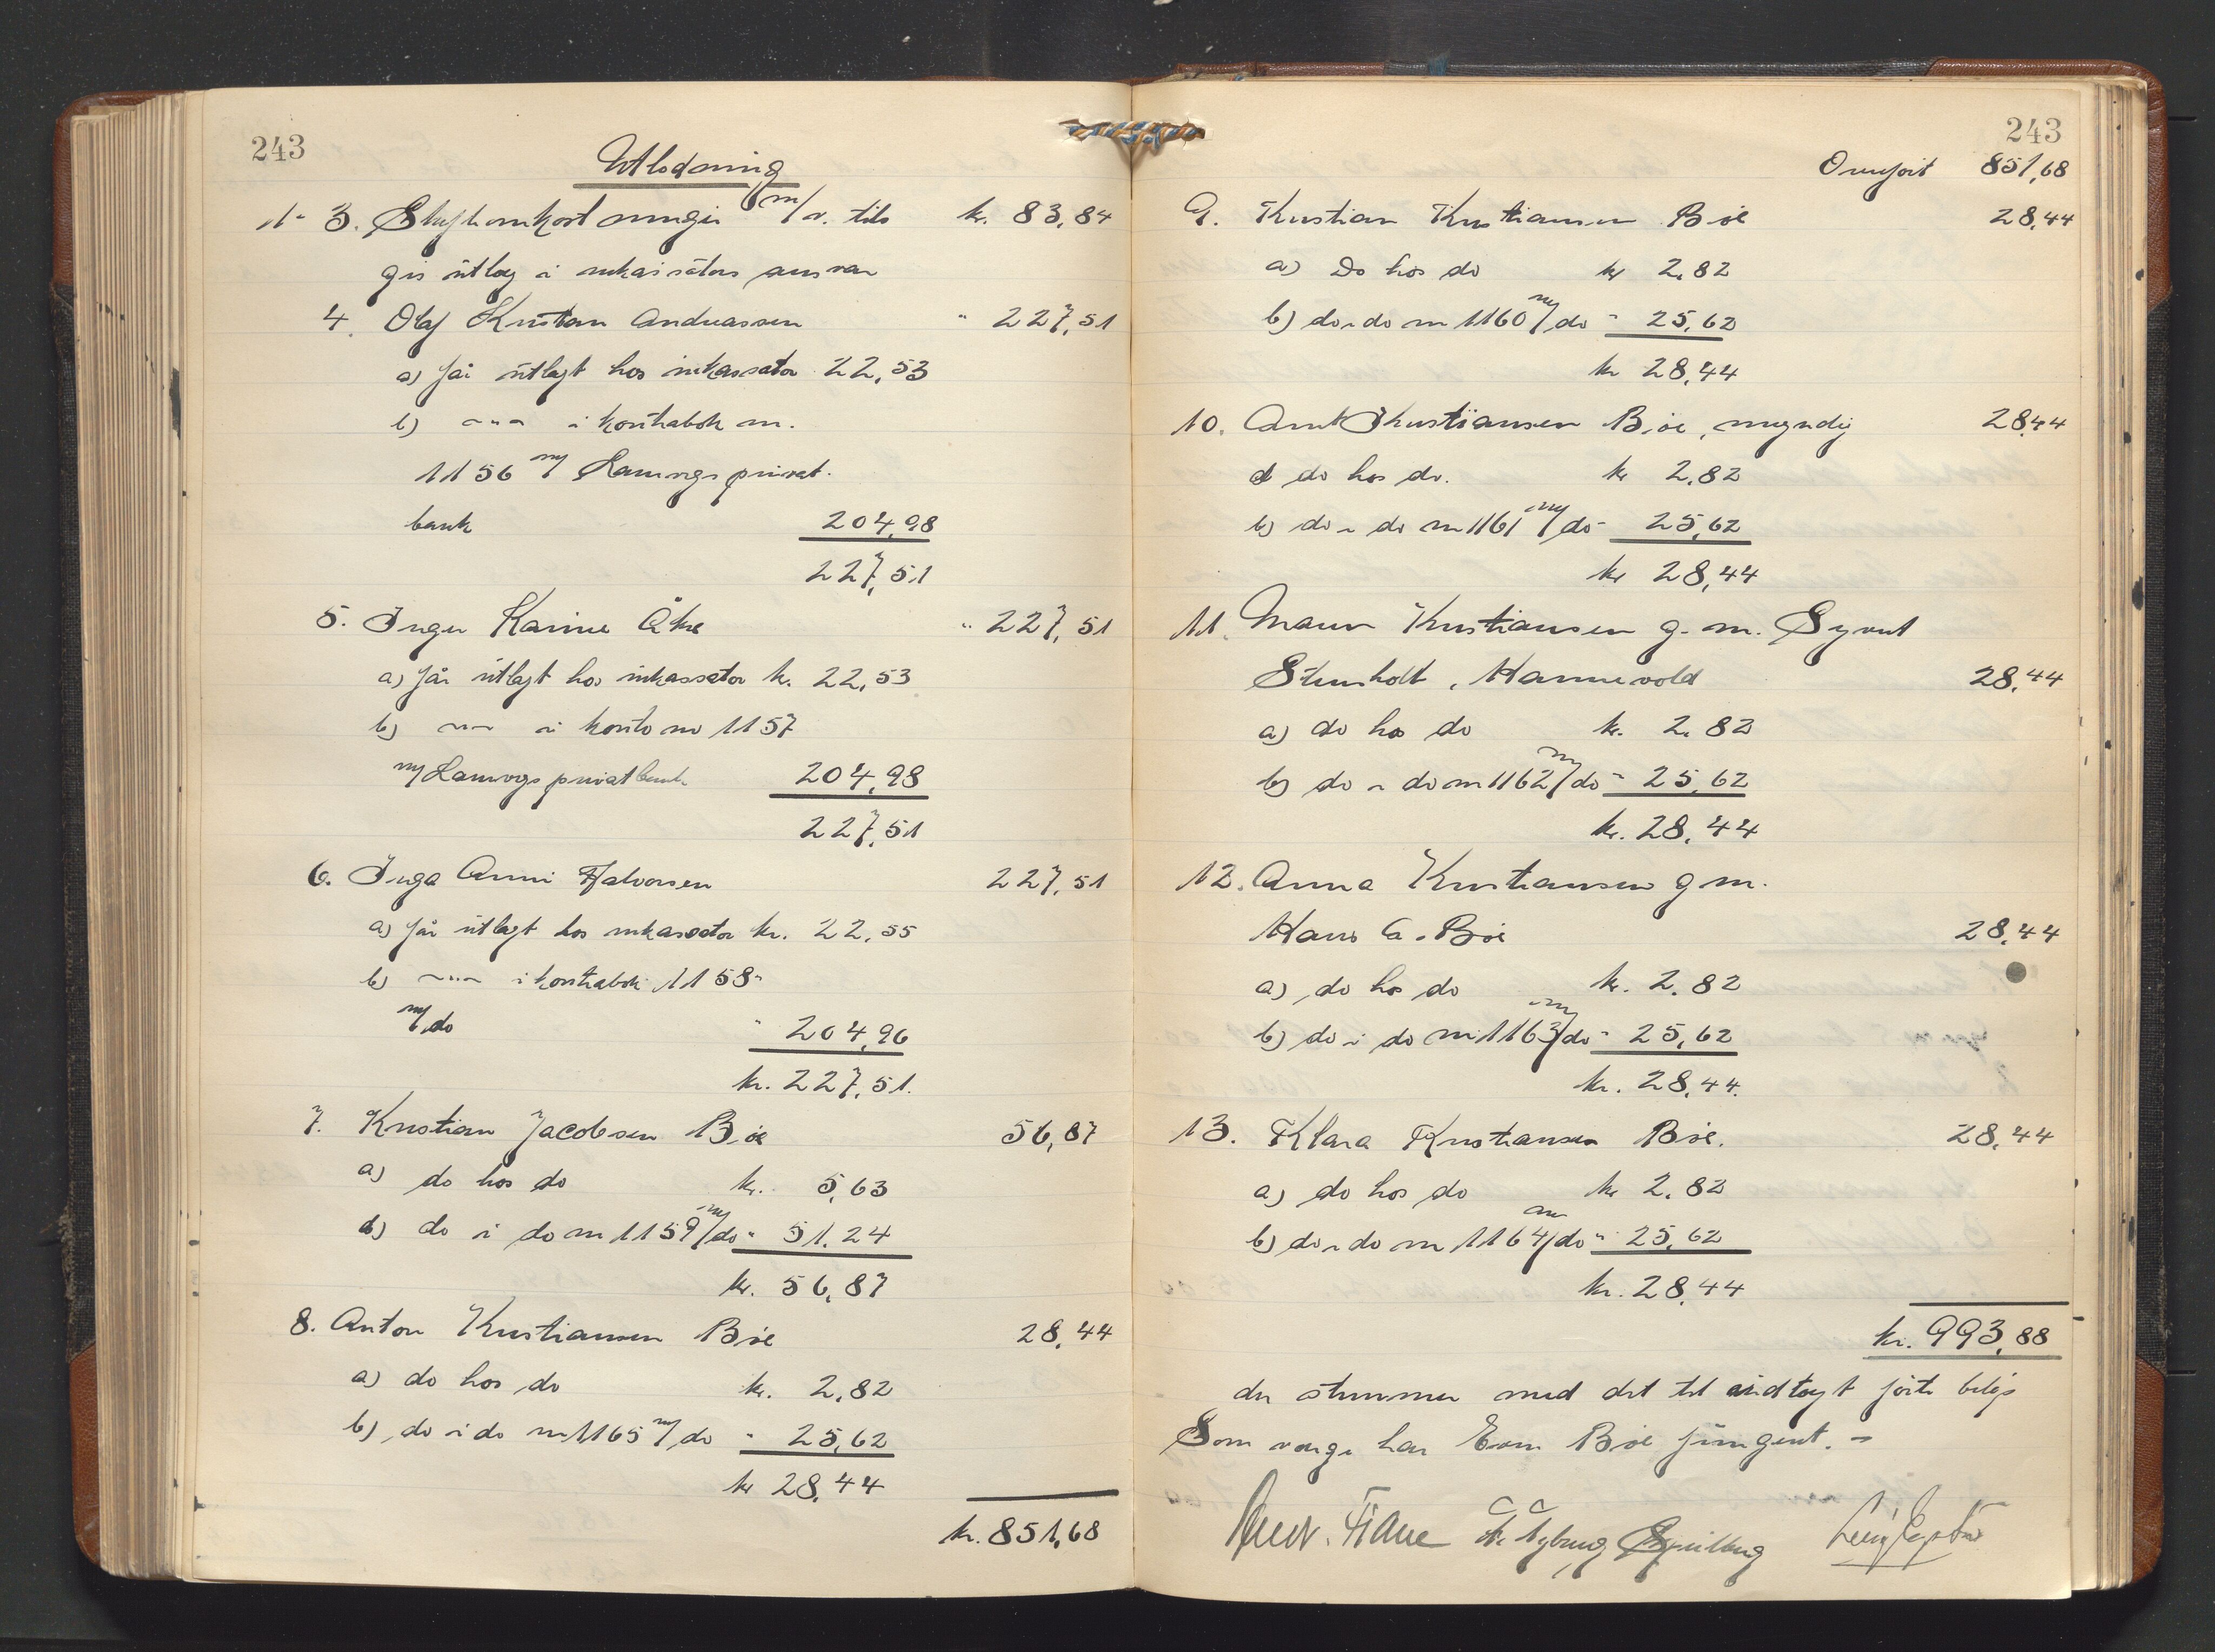 243
Utlodning
1-3. Skifteomkostninger m/v. tils kr. 83,84
gis utlæg i inkassators ansvar
4. Olaf Kristian Andreassen " 227,51
a) får utlagt hos inkassator 22,53
b) -"- i kontrabok nr.
1156 m/ Langesgs privat.
bank 204,98
227,51
5. Inger Karine Åke " 227,51
a) får utlagt hos inkassator k. 22,53
b) -"- i konto nr 1157
m/ privatbank 204,98
227,51
6. Inga Anni Halvorsen 227,51
a) får utlagt hos inkassator kr. 22,55
b) -"- i kontrabok 1158-
m/ do " 204,96
kr. 227,51.
7. Kristian Jacobsen Bøe 56,87
a) do hos do kr. 5,63
b) do i do nr 1159 m/ do " 51,24
kr. 56,87
8. Anton Kristiansen Bøe 28,44
a) do hos do kr. 2,82
b) do i do nr 1165 m/ do " 25,62
kr 28,44
kr. 851,68
243
Overført 851,68
9. Kristian Kristiansen Bøe 28,44
a) Do hos do kr 2,82
b) do i do nr 1160 m/ do " 25,62
kr 28,44
10. Arnt Kristiansen Bøe, myndig 28,44
a do hos do. kr 2,82
b) do i do nr 1161 m/ do - 25,62
kr 28,44
11. Maren Kristiansen g. m. Syvert
Stensholt, Hannevold 28,44
a) do hos do kr. 2,82
b) do i do nr 1162 m/ do " 25,62
kr. 28,44
12. Anna Kristiansen g m.
Hans A. Bøe 28,44
a) do hos do kr. 2,82
b) do i do nr 1163 m/ do " 25,62
kr. 28,44.
13. Klara Kristiansen Bøe. 28,44
a) do hos do kr 2,82
b) do i do nr 1164 m/ do " 25,62
kr. 28,44
kr. 993,88
der stemmer med det til indtægt førte beløp
Som verge har Even Bøe fungert. -